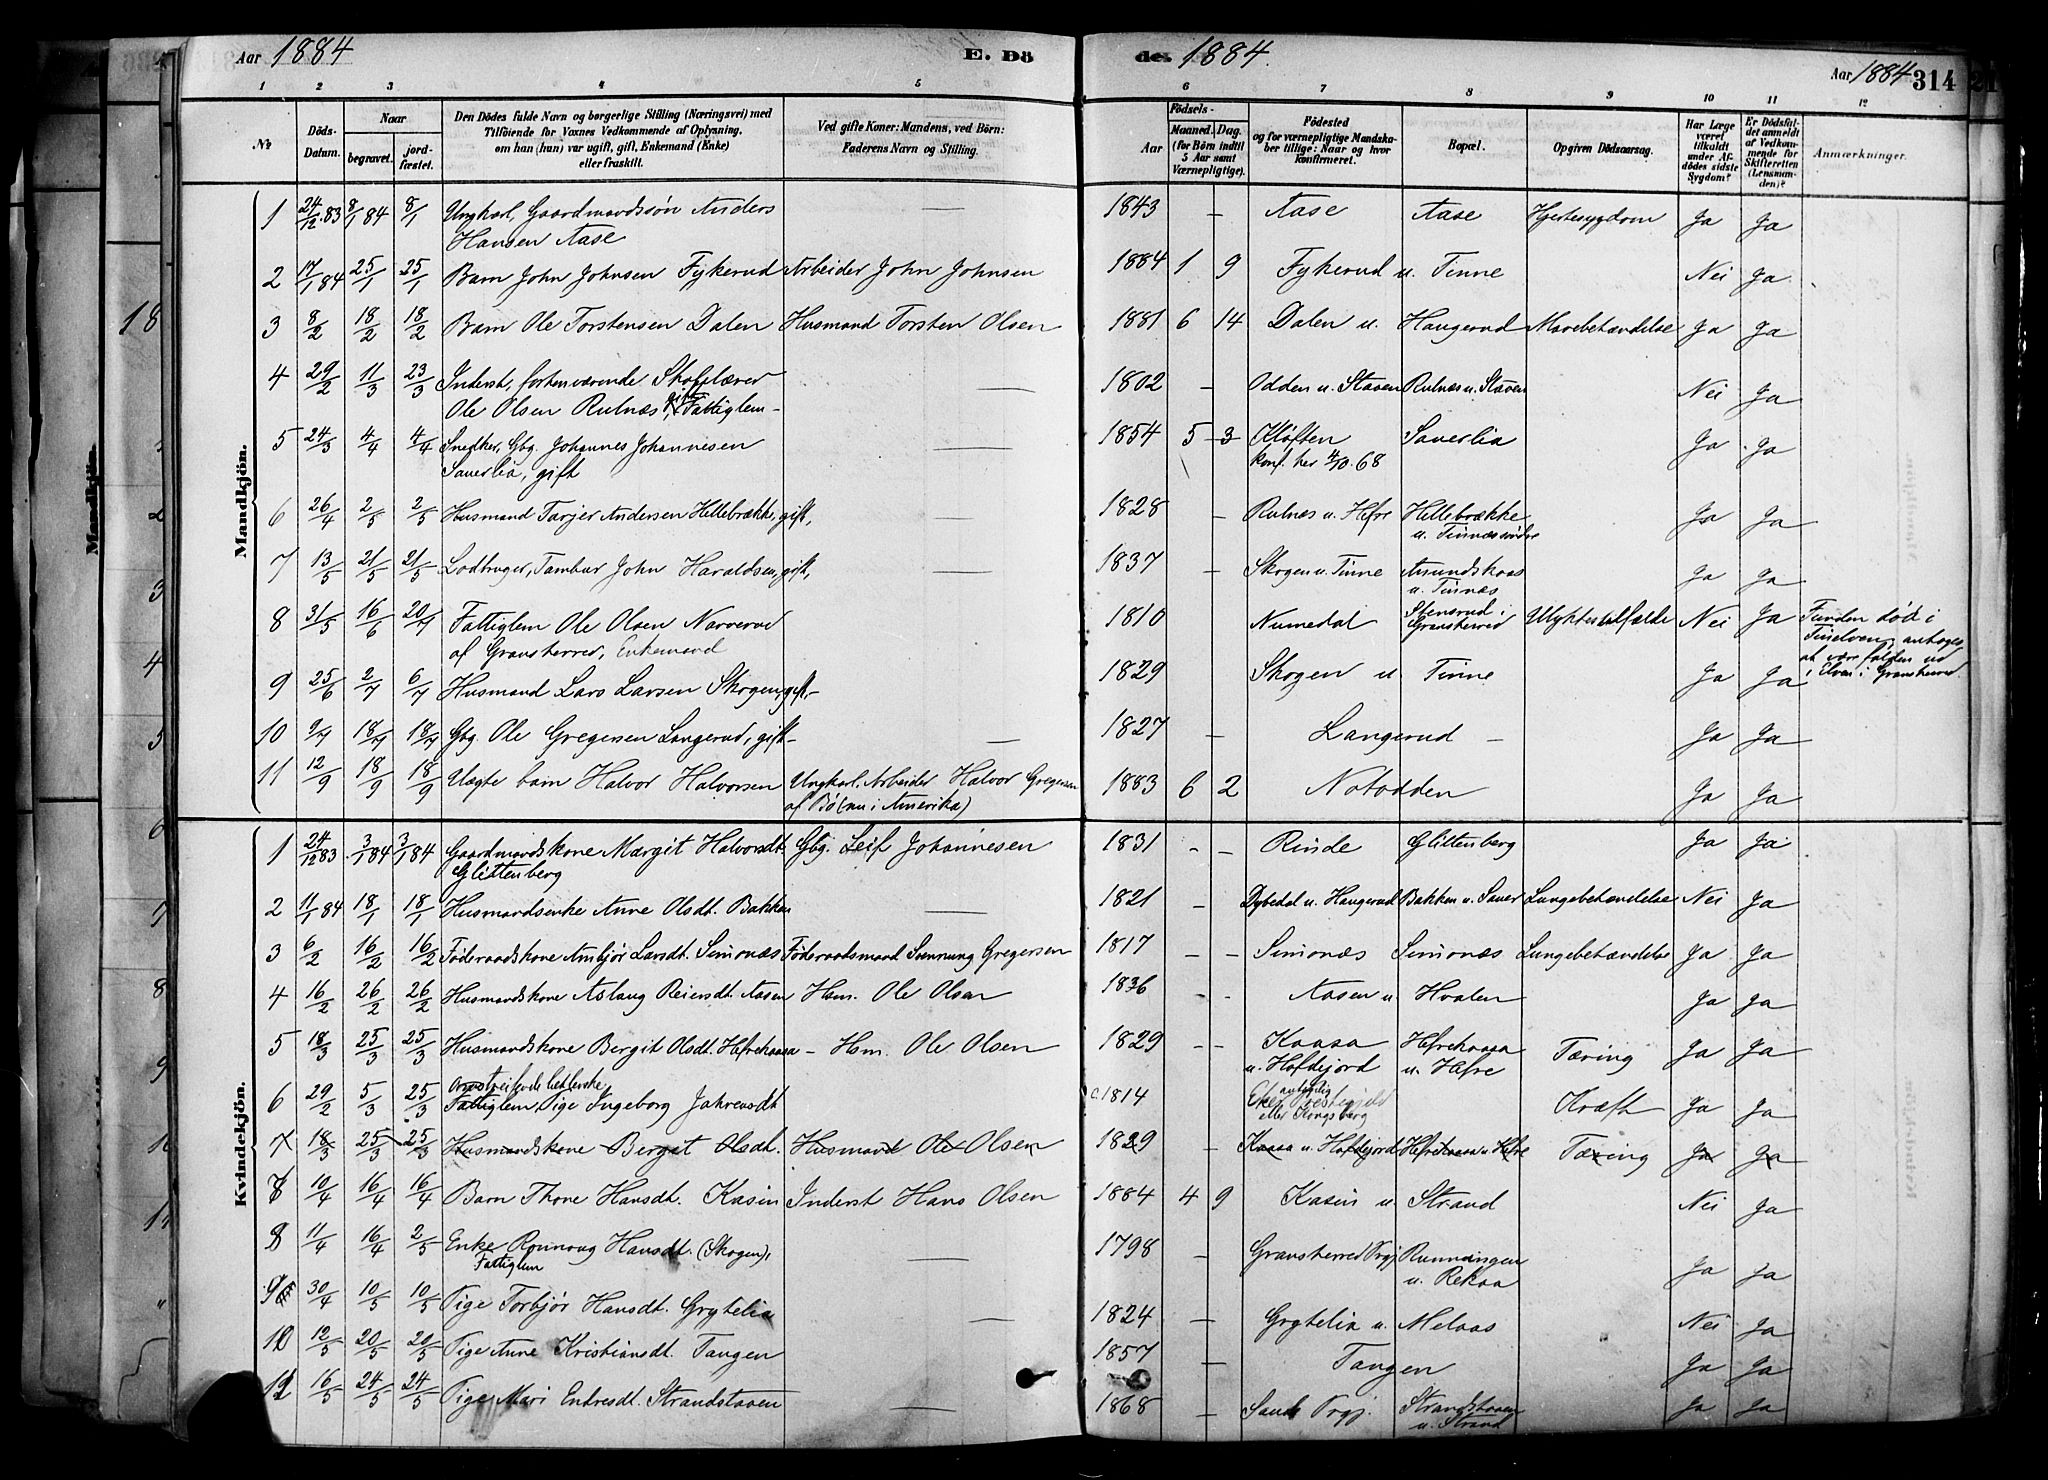 Aar 1884 E. Dö
de. 1884.
Aar 1884 314
1 2 3 4 5 6 7 8 9 10 11 12
№
Döds-Datum.
Naar
begravet.
jord-fæstet.
Den Dödes fulde Navn og borgerlige Stilling (Næringsvei) med
Tilföiende for Voxnes Vedkommende af Oplysning,
om han (hun) var ugift, gift, Enkemand (Enke)
eller fraskilt.
Ved gifte Koner: Mandens, ved Börn:
Faderens Navn og Stilling.
Födsels-
Aar
Maaned. Dag.
(for Börn indtil
5 Aar samt
Værnepligtige).
Födested
og for værnepligtige Mandska-
ber tillige: Naar og hvor
konfirmeret.
Bopæl.
Opgiven Dödsaarsag.
Har Læge
været
tilkaldt
under Af-
dödes sidste
Sygdom?
Er Dödsfal-
det anmeldt
af Vedkom-
mende for
Skifteretten
(Lensman-
den)?
Anmærkninger.
Mandkjön.
1 24/12 83 8/1 84 8/1 Ungkarl, Gaardmandssøn Anders Hansen Aase — 1843 — Aase Aase Hjertesygdom Ja Ja
2 17/1 84 25/1 25/1 Barn John Johnsen Fykerud Arbeider John Johnsen 1884 1 9 Fykerud u. Tinne Nei Ja
3 8/2 18/2 18/2 Barn Ole Torstensen Dalen Husmand Torsten Olsen 1881 6 14 Dalen u. Haugerud Mavebetændelse Ja Ja
4 29/2 11/3 23/3 Inderst, forhenværende Skoflærer Ole Olsen Rulnæs, gift, Fattiglem — 1802 — Odden u. Staven Rulnæs u. Staven Nei Ja
5 24/3 4/4 4/4 Snedker, Gbg. Johannes Johannesen Sauerlia, gift — 1854 5 3 Kløften konf. her 4/10. 68 Sauerlia Ja Ja
6 26/4 2/5 2/5 Husmand Tarjer Andersen Hellebrække, gift, — 1828 — Rulnæs u. Hefre Hellebrække u. Tinnæs Ja Ja
7 13/5 21/5 21/5 Lodbruger, Tambur John Haraldsen, gift, — 1837 — Skogen u. Tinne Amundskaas u. Tinnæs Ja Ja
8 31/5 16/6 20/7 Fattiglem Ole Olsen Narverud af Gransherred, Enkemand 1810 Numedal Stensrud i Gransherred Ulykkestilfælde Nei Ja Funden død i Tinelven, antages at være falden ud i Elven i Gransherred.
9 25/6 2/7 6/7 Husmand Lars Larsen Skogen, gift, — 1829 Skogen u. Tinne Ja Ja
10 9/7 18/7 18/7 Gbg. Ole Gregersen Langerud, gift — 1827 — Langerud — Ja Ja
11 12/9 18/9 18/9 Uægte barn Halvor Halvorsen Ungkarl, Arbeider Halvor Gregersen af Bø (nu i Amerika) 1883 6 2 Notodden Ja Ja
Kvindekjön.
1 24/12 83 3/1 84 3/1 84 Gaardmandskone Margit Halvorsdt. Glittenberg Gbg. Leif Johannesen 1831 — — Rinde Glittenberg Ja Ja
2 11/1 84 18/1 18/1 Husmandsenke Anne Olsdt. Bakken — 1821 — Dybedal u. Haugerud Bakken u. Sauer Lungebetændelse Nei Ja
3 6/2 16/2 16/2 Føderaadskone Ambjør Larsdt. Semonæs Føderaadsmand Svennung Gregersen 1817 — — Semonæs Semonæs Lungebetændelse Ja Ja
4 16/2 26/2 26/2 Husmandskone Aslaug Reiersdt. Aasen Hsm. Ole Olsen 1836 — Aasen u. Hvalen Ja Ja
5 18/3 25/3 25/3 Husmandskone Bergit Olsdt. Hefrekaasa — Hsm. Ole Olsen 1829 — — Kaasa u. Hofdejord Hefrekaasa u. Hefre Tæring Ja Ja
6 29/2 5/3 25/3 omstreifende betlerske Fattiglem Pige Ingeborg Jahrensdt c. 1814 antagelig Eker Prestegjeld eller Kongsberg Kræft Ja Ja
7 18/3 25/3 25/3 Husmandskone Bergit Olsdt. Husmand Ole Olsen 1829 — Kaasa u. Hofdejord Hefrekaasa u. Hefre Tæring Ja Ja
7 10/4 16/4 16/4 Barn Thone Hansdt. Kasin Inderst Hans Olsen 1884 4 9 Kasin u. Strand Nei Ja
8 11/4 16/4 2/5 Enke Rønnaug Hansdt. (Skogen), Fattiglem — 1798 — Gransherred Prgj. Runningen u. Rekaa Ja Ja
9 30/4 10/5 10/5 Pige Torbjør Hansdt. Grytelia — 1824 — Grytelia u. Melaas Nei Ja
10 12/5 20/5 20/5 Pige Anne Kristiansdt. Tangen 1857 — Tangen Ja Ja
12 16/5 24/5 24/5 Pige Mari Endresdt. Strandstaaen — 1868 — Saude Prgj. Strandstaaen u. Strand Ja Ja